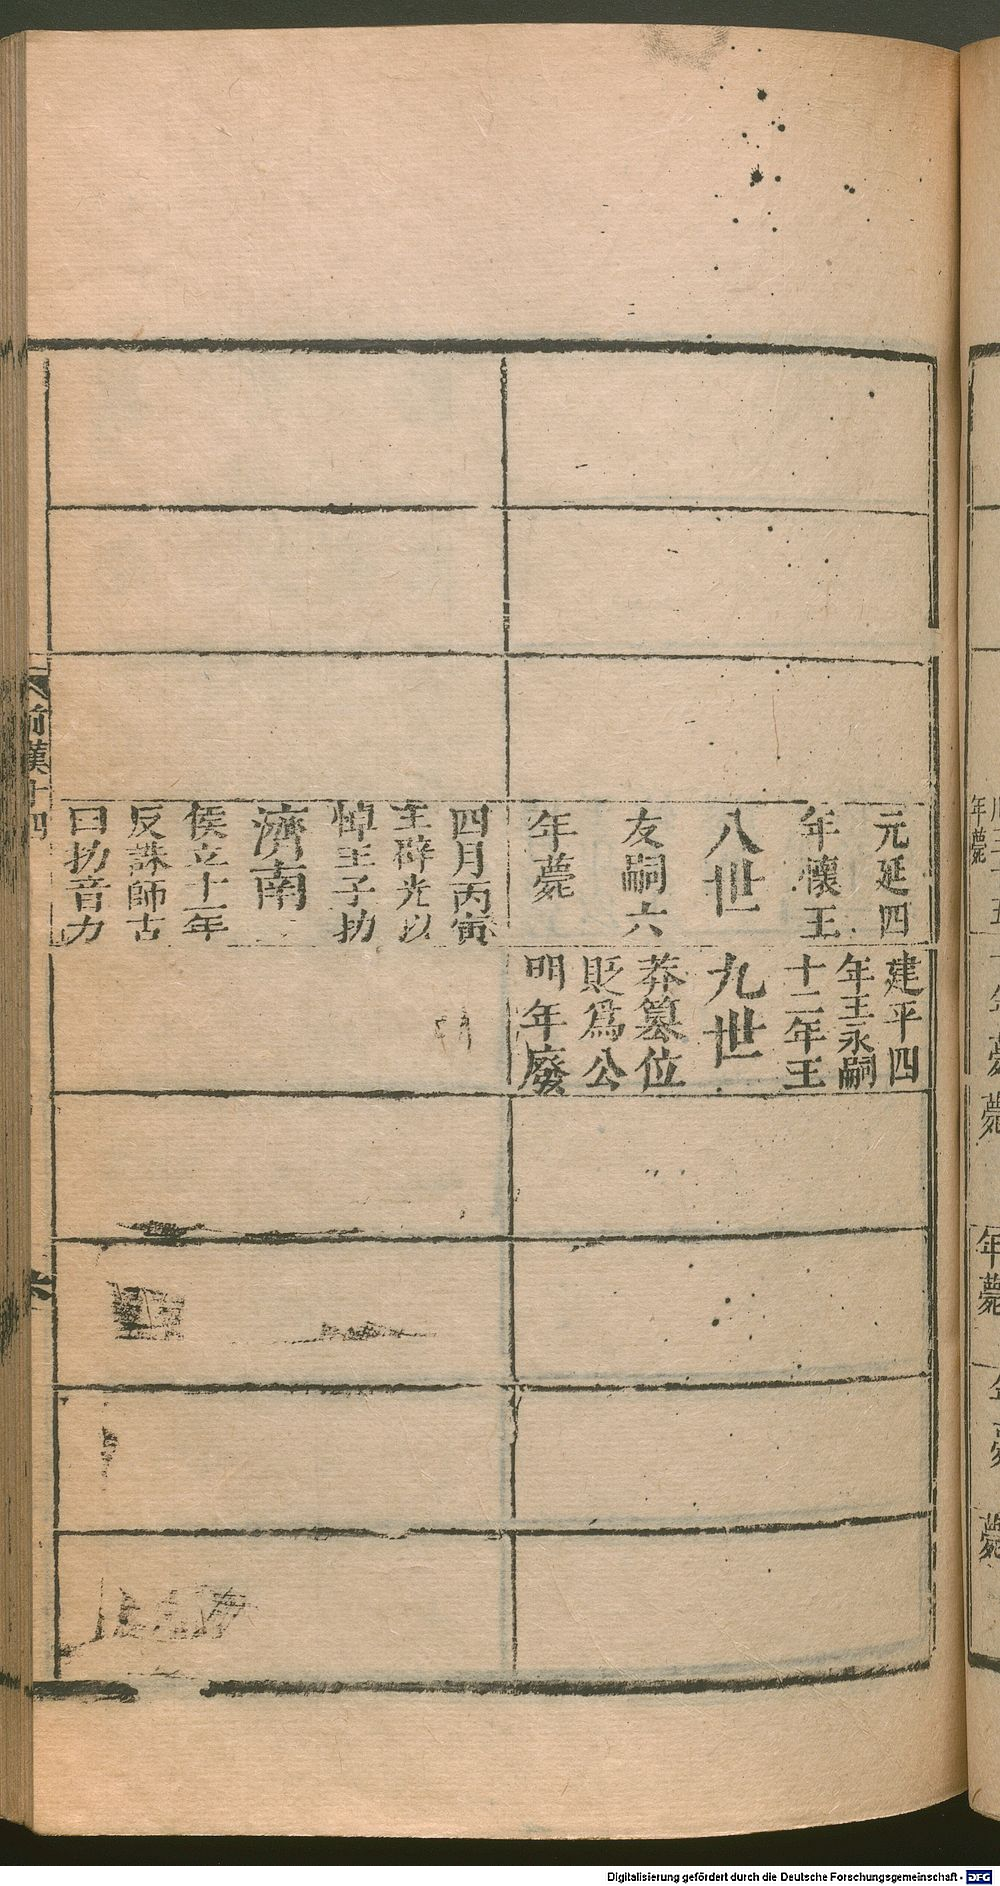 元延四
年懷王
八世
友嗣六
年薨
建平四
年王永嗣
十二年王
九世
莽篡位
貶爲公
明年廢
四月丙寅
王辟光以
悼王子扐
濟南
侯立十一年
反誅師古
曰扐音力
前漢十四
年薨
薨
年薨
薨
Digitalisierung gefördert durch die Deutsche Forschungsgemeinschaft - DFG